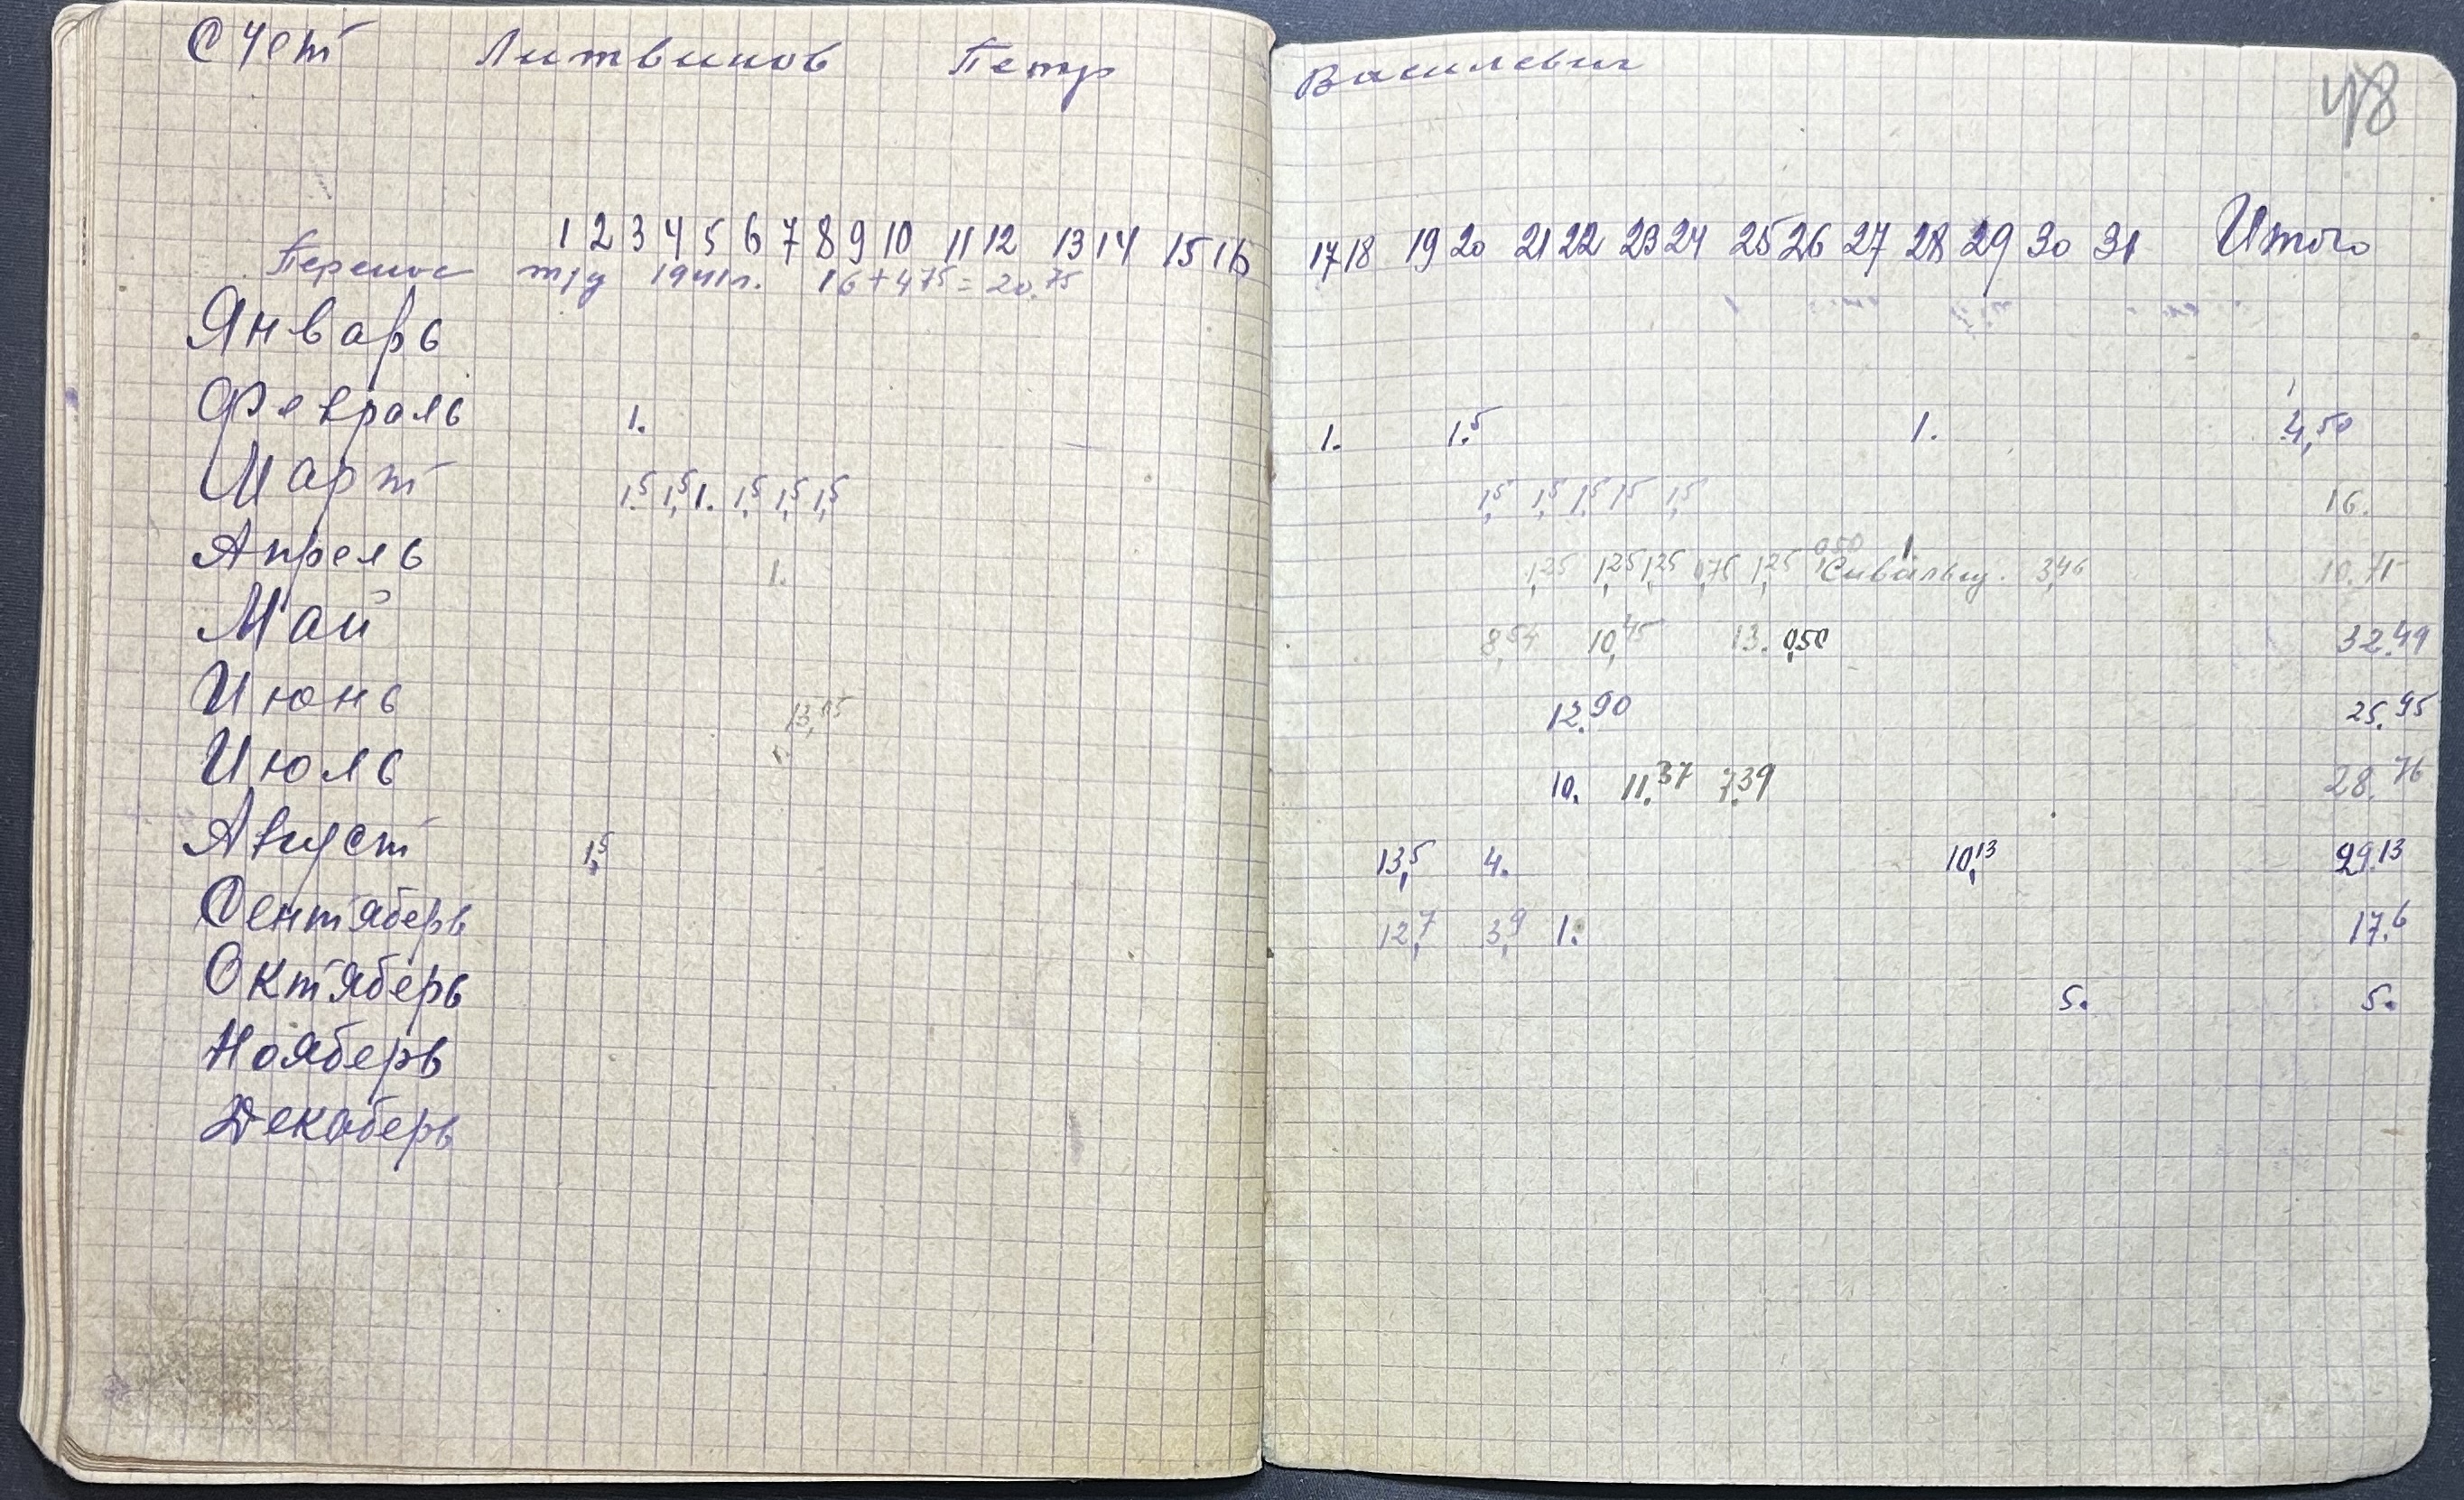 Счет Литвинов Петр Василевич
48
1 2 3 4 5 6 7 8 9 10 11 12 13 14 15 16 17 18 19 20 21 22 23 24 25 26 27 28 29 30 31 Итого
Перенос т/д 1941г. 16+4,75=20.75
Январь
Февраль 1. 1. 1.5 1. 4,50
Март 1.5 1,5 1. 1,5 1,5 1,5 1,5 1,5 1.5 1.5 1,5 16.
0,50 1
Апрель 1. 1,25 1,25 1,25 0,75 1,25 3,46 10.71
Май 8,54 10,45 13. 0,50 32.49
Июнь 13,05 12.90 25.95
Июль 10. 11.37 7.39 28.76
Август 1,5 13,5 4. 10,13 29.13
Сентяберь 12,7 3,9 1. 17.6
Октяберь 5. 5.
Нояберь
Декаберь